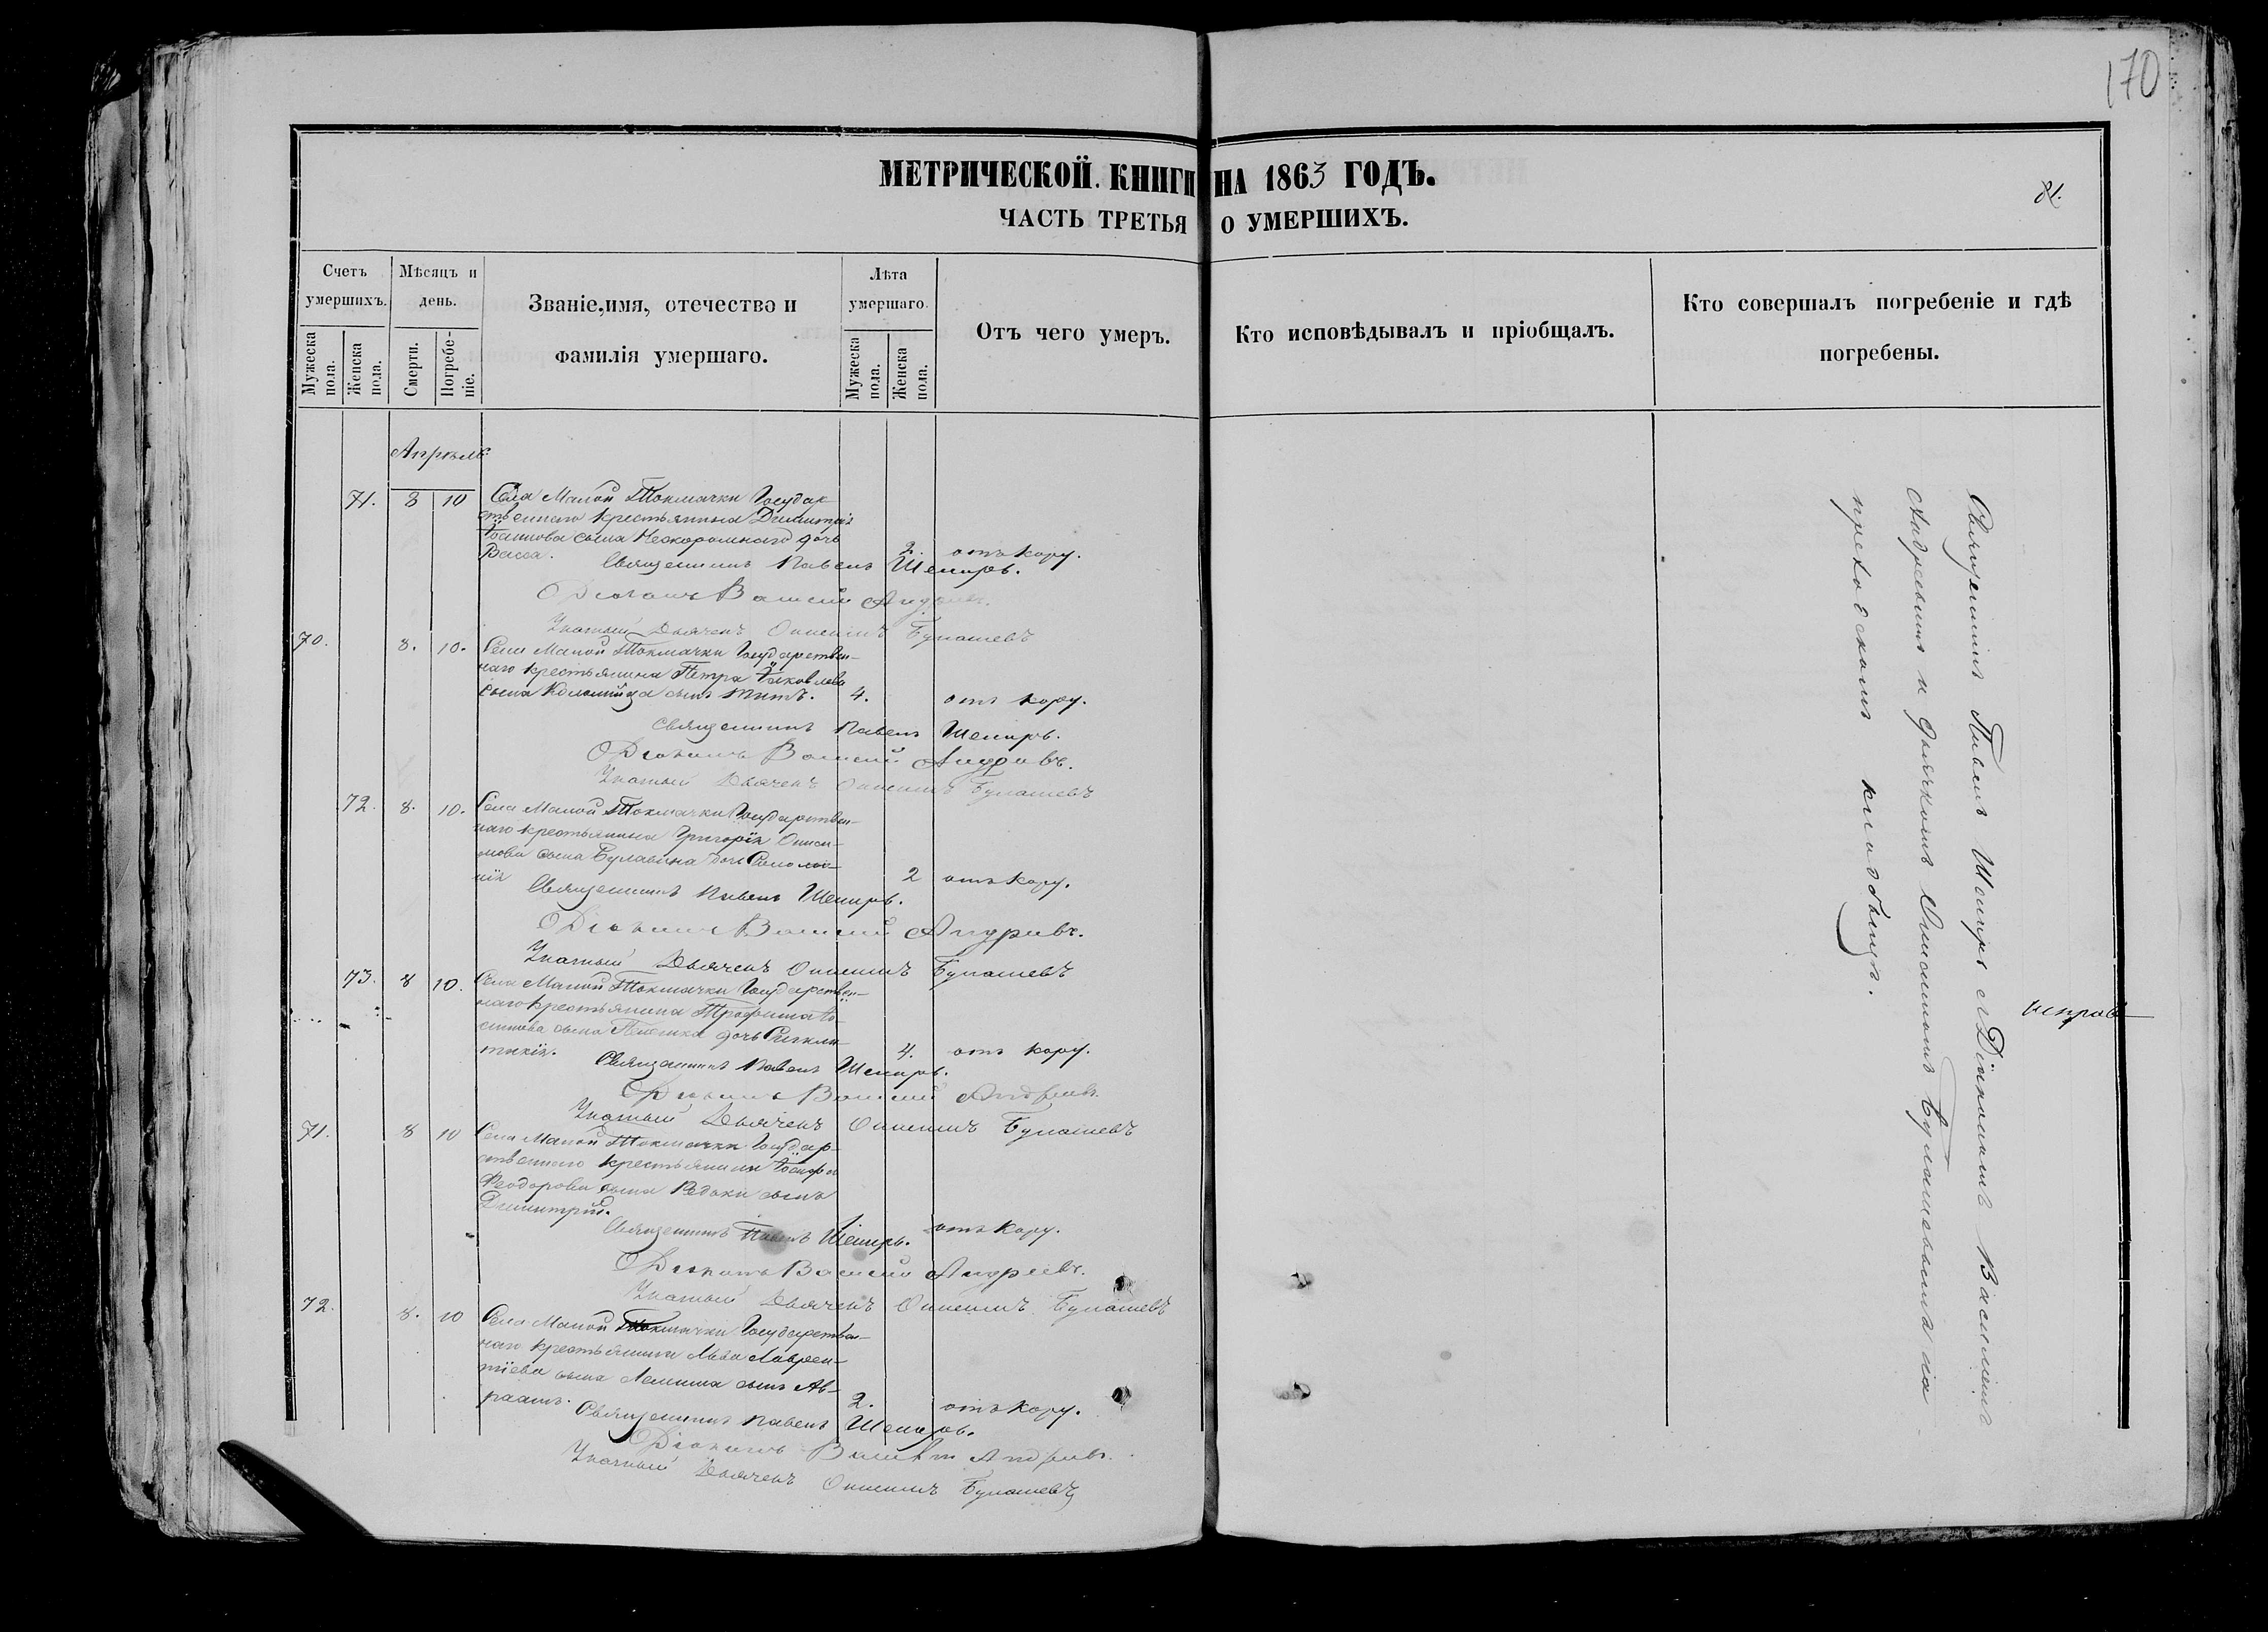 170
МЕТРИЧЕСКОЙ КНИГИ НА 1863 ГОДЪ.
81.
ЧАСТЬ ТРЕТЬЯ О УМЕРШИХЪ.
Счетъ умершихъ.
Мужеска пола.
Женска пола.
Мѣсяцъ и день.
Смерти.
Погребеніе.
Званіе, имя, отечество и фамилія умершаго.
Лѣта умершаго.
Мужеска пола.
Женска пола.
Отъ чего умеръ.
Кто исповѣдывалъ и пріобщалъ.
Кто совершалъ погребеніе и гдѣ погребены.
Апрѣль
71. 8 10 Села Малой Токмачки Государ-
ственнаго крестьянина Димитрія
Іоаннова сына Нескоромнаго дочь
Васса. 2. отъ кору.
Священникъ Павелъ Шемиръ.
Діаконъ Василій Андреевъ.
Указный Дьячекъ Онисимъ Булашевъ
70. 8. 10. Села Малой Токмачки Государствен-
наго крестьянина Петра Яковлева
сына Коломійца сынъ Титъ. 4. отъ кору.
Священникъ Павелъ Шемиръ.
Діаконъ Василій Андреевъ.
Указный Дьячекъ Онисимъ Булашевъ
72. 8. 10. Села Малой Токмачки Государствен-
наго крестьянина ГригоріяОниси-
мова сына Булавина дочь Соломо-
нія 2 отъ кору.
Священникъ Павелъ Шемиръ.
Діаконъ Василій Андреевъ.
Указный Дьячекъ Онисимъ Булашевъ
73. 8 10. Села Малой Токмачки Государствен-
наго крестьянина Трофима
сына дочь
4. отъ кору.
Священникъ Павелъ Шемиръ.
Діаконъ Василій Андреевъ.
Указный Дьячекъ Онисимъ Булашевъ
71. 8 10 Села Малой Токмачки Государ-
ственнаго крестьянина Іосифа
Феодорова сына Редьки сынъ
Димитрій. 1. отъ кору.
Священникъ Павелъ Шемиръ.
Діаконъ Василій Андреевъ.
Указный Дьячекъ Онисимъ Булашевъ
72. 8. 10 Села Малой Токмачки Государствен-
наго крестьянина Льва Лаврен-
тіева сына сынъ Ав-
раамъ. 2. отъ кору.
Священникъ Павелъ Шемиръ.
Діаконъ Василій Андреевъ.
Указный Дьячекъ Онисимъ Булашевъ
Священникъ Павелъ Шемиръ съ Діакономъ Василіемъ
Андреевымъ и дьячкомъ Онисимомъ Булашовымъ на
приходскомъ кладбищѣ.